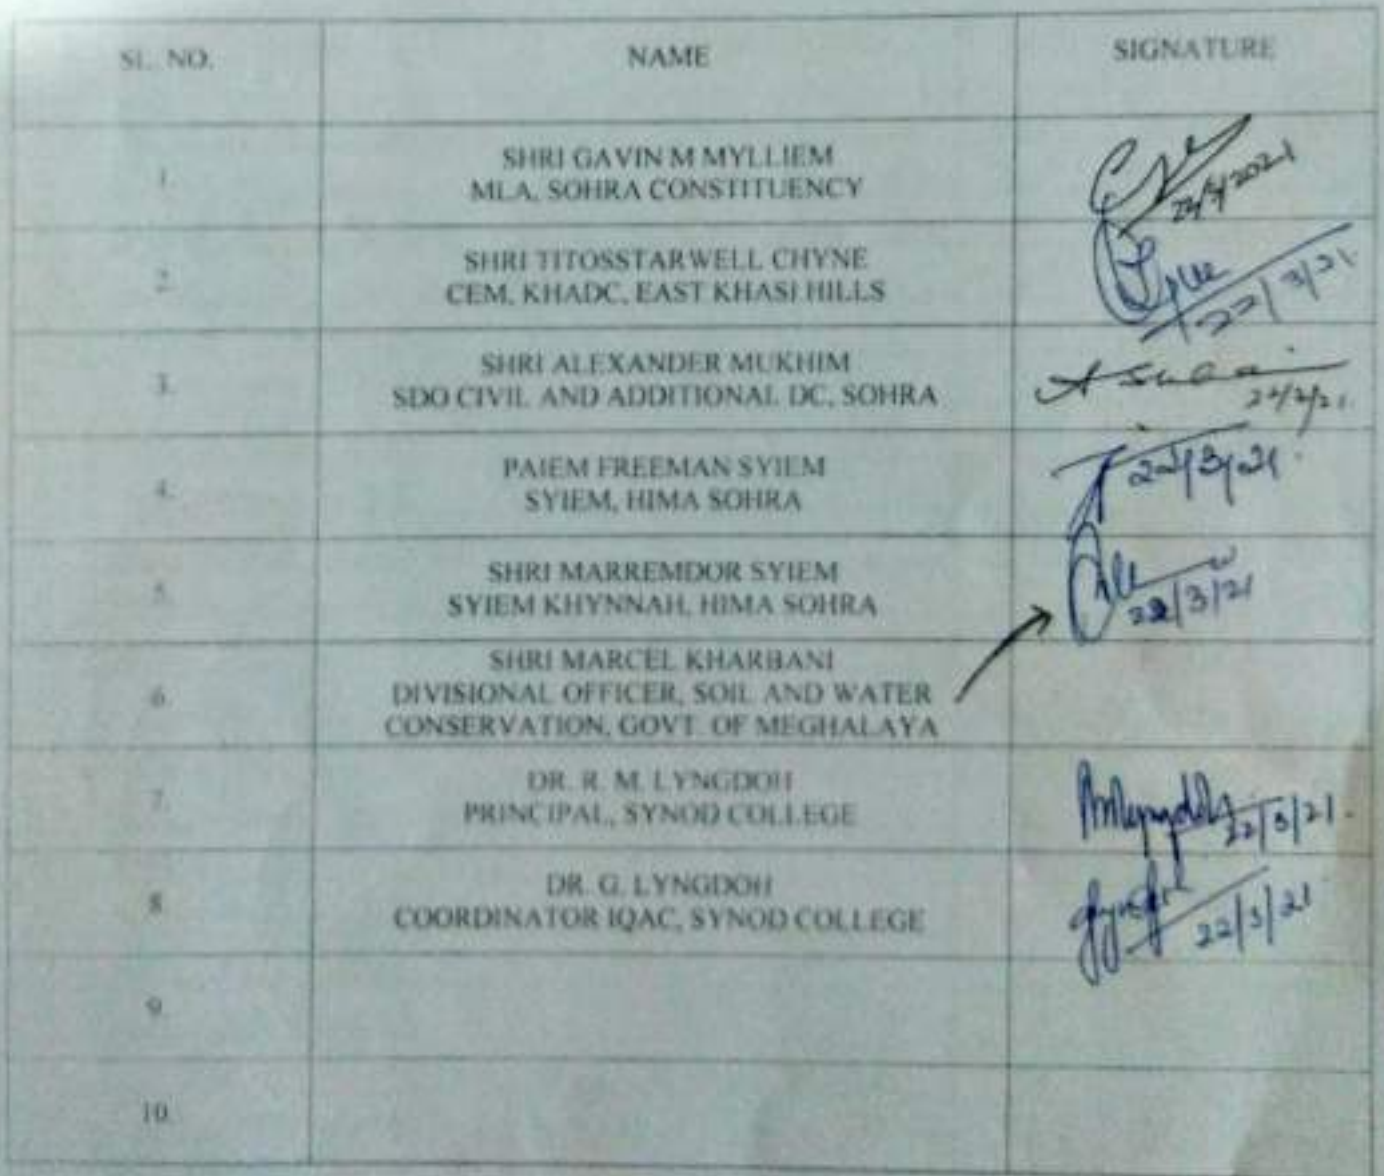 SL. NO. NAME SIGNATURE
1. SHRI GAVIN M MYLLIEM
MLA, SOHRA CONSTITUENCY
22/3/2021
2. SHRI TITOSSTARWELL CHYNE
CEM, KHADC, EAST KHASI HILLS
22/3/21
3. SHRI ALEXANDER MUKHIM
SDO CIVIL AND ADDITIONAL DC, SOHRA
4. PAIEM FREEMAN SYIEM
SYIEM, HIMA SOHRA
22/3/21
5. SHRI MARREMDOR SYIEM
SYIEM KHYNNAH, HIMA SOHRA
22/3/21
6. SHRI MARCEL KHARBANI
DIVISIONAL OFFICER, SOIL AND WATER
CONSERVATION, GOVT. OF MEGHALAYA
7. DR. R. M. LYNGDOH
PRINCIPAL, SYNOD COLLEGE
22/3/21
8 DR. G. LYNGDOH
COORDINATOR IQAC, SYNOD COLLEGE
22/3/21
9
10.